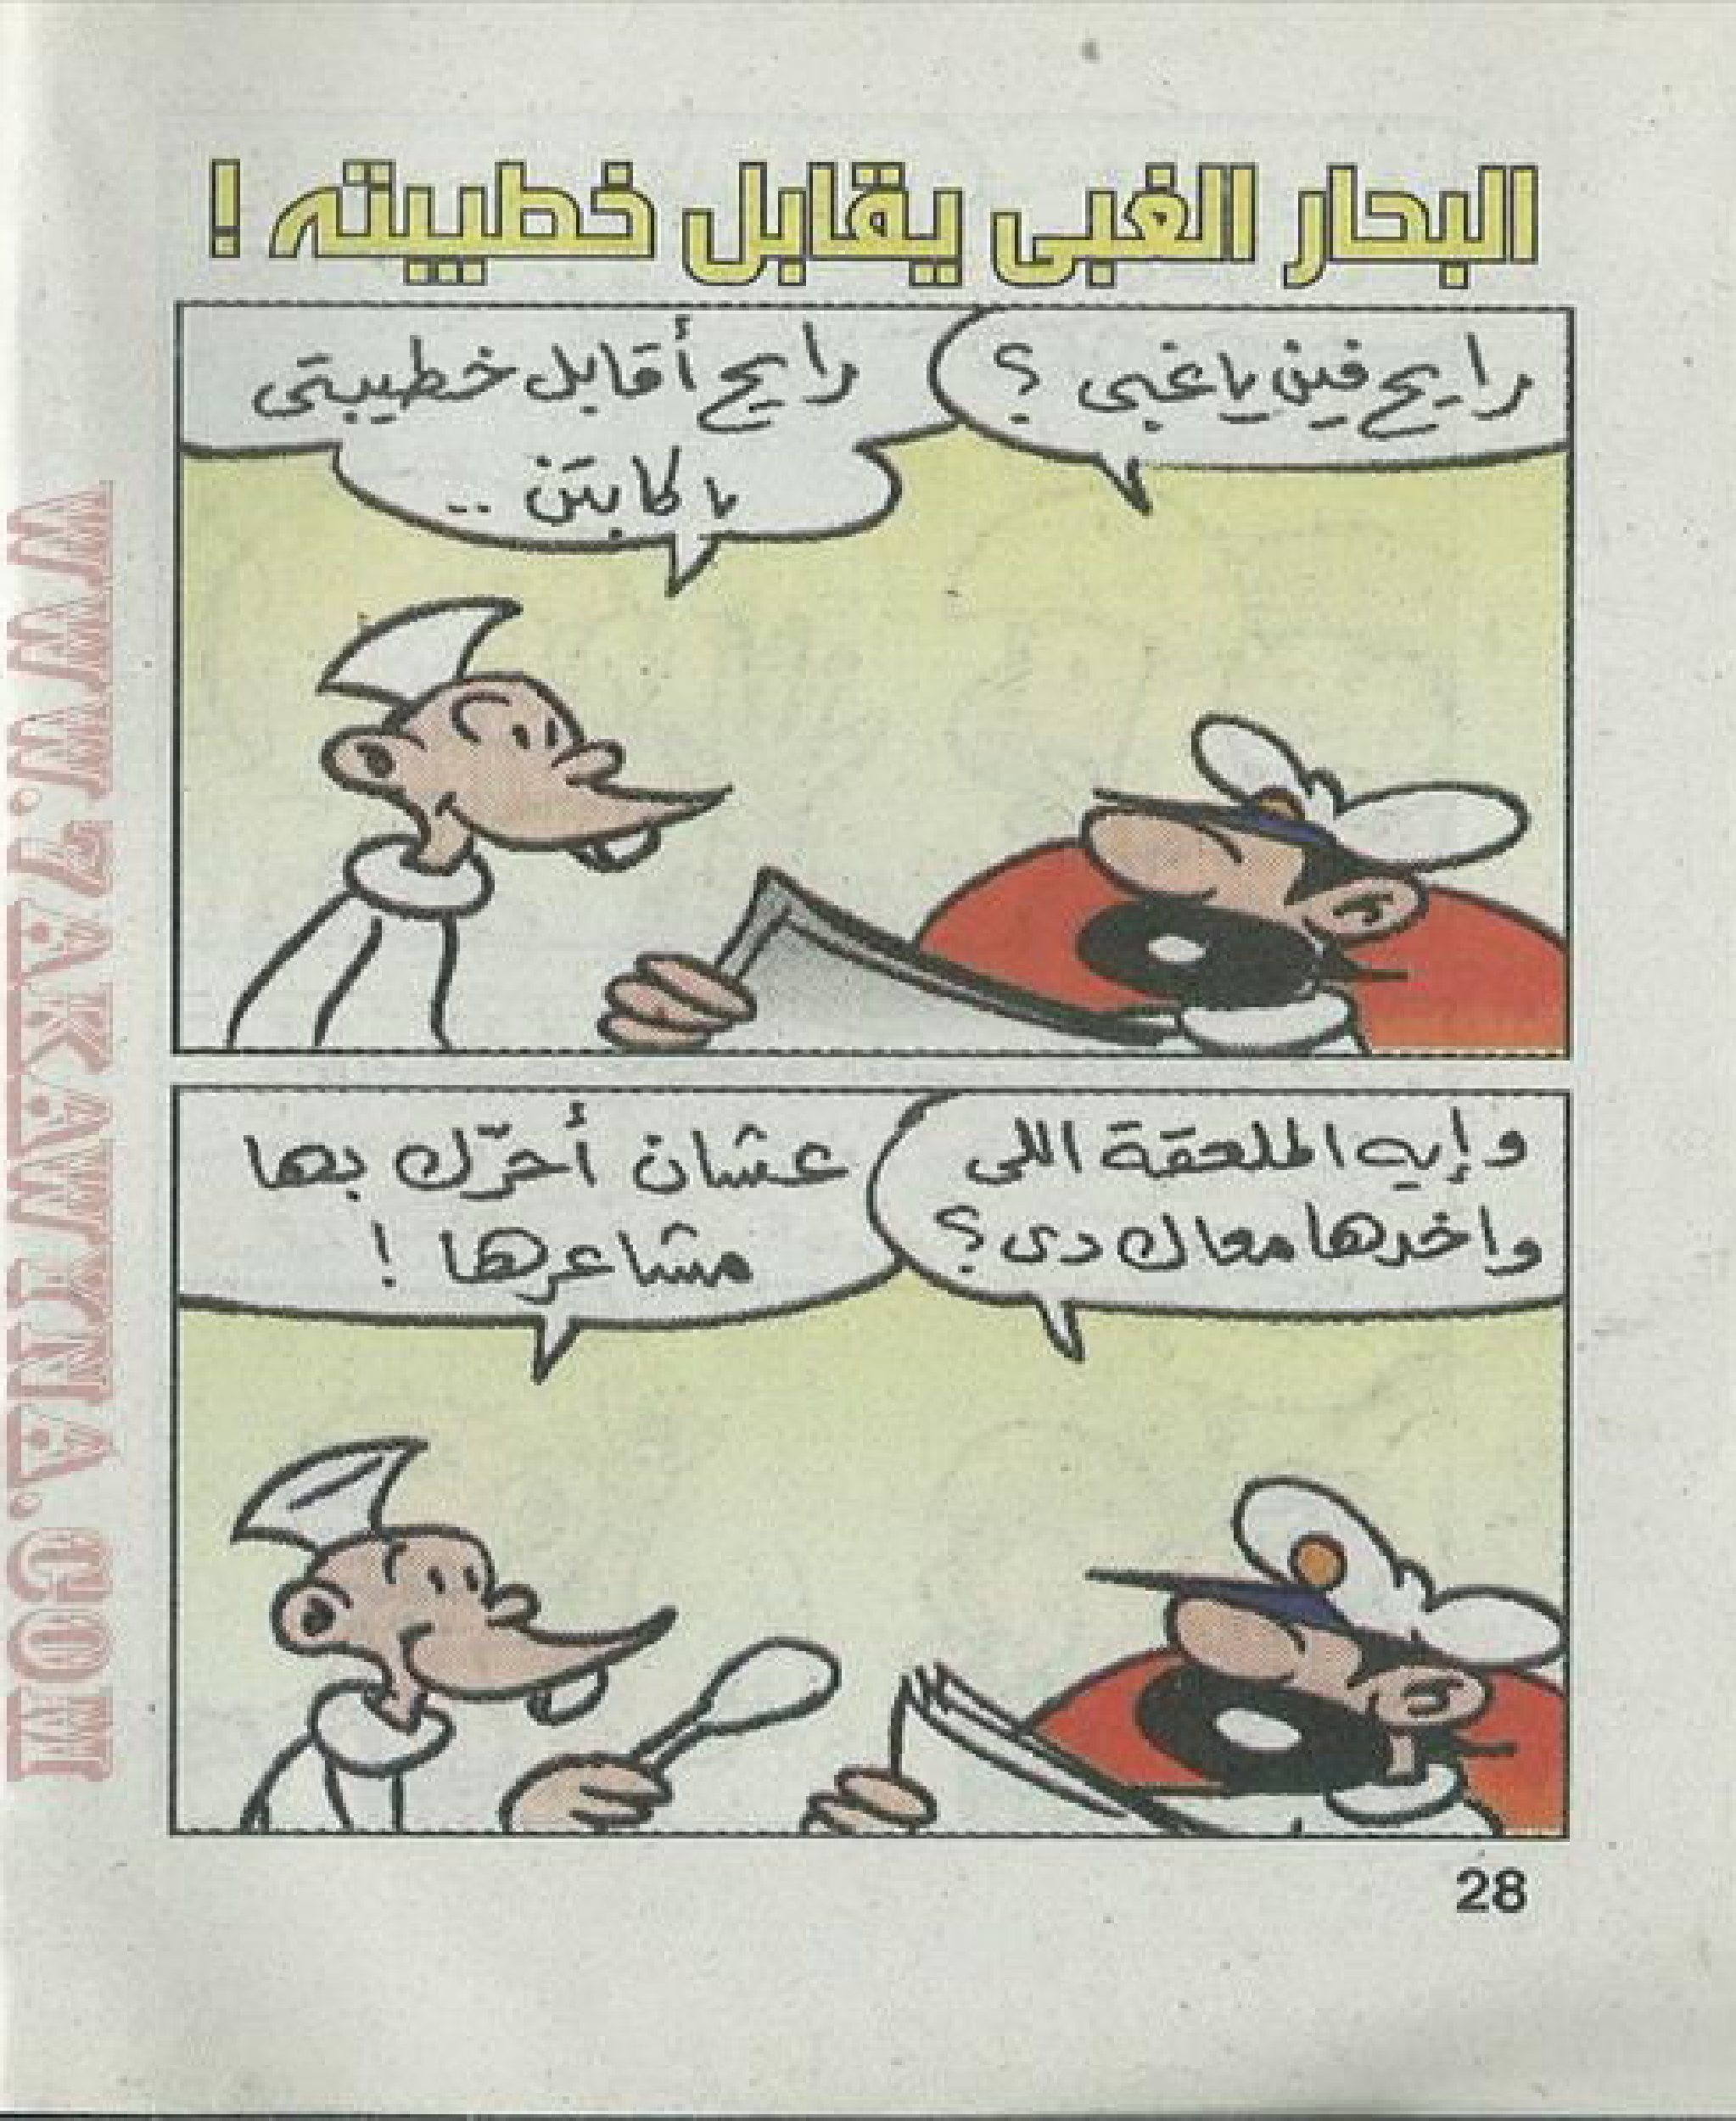 البحار الغبى يقابل خطيبته !
رايح فين يا غبى ؟
رايح أقابل خطيبتى
يا كابتن ..
وإيه الملعقة اللى
واخدها معاك دى ؟
عشان أحرّك بها
مشاعرها !
28
WWW.ZAKAWINA.COM